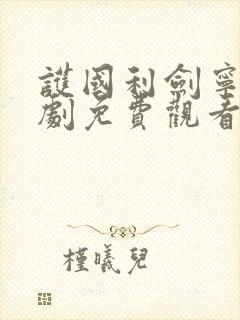 護國利劍寧
劇免費觀看
槿曦兒